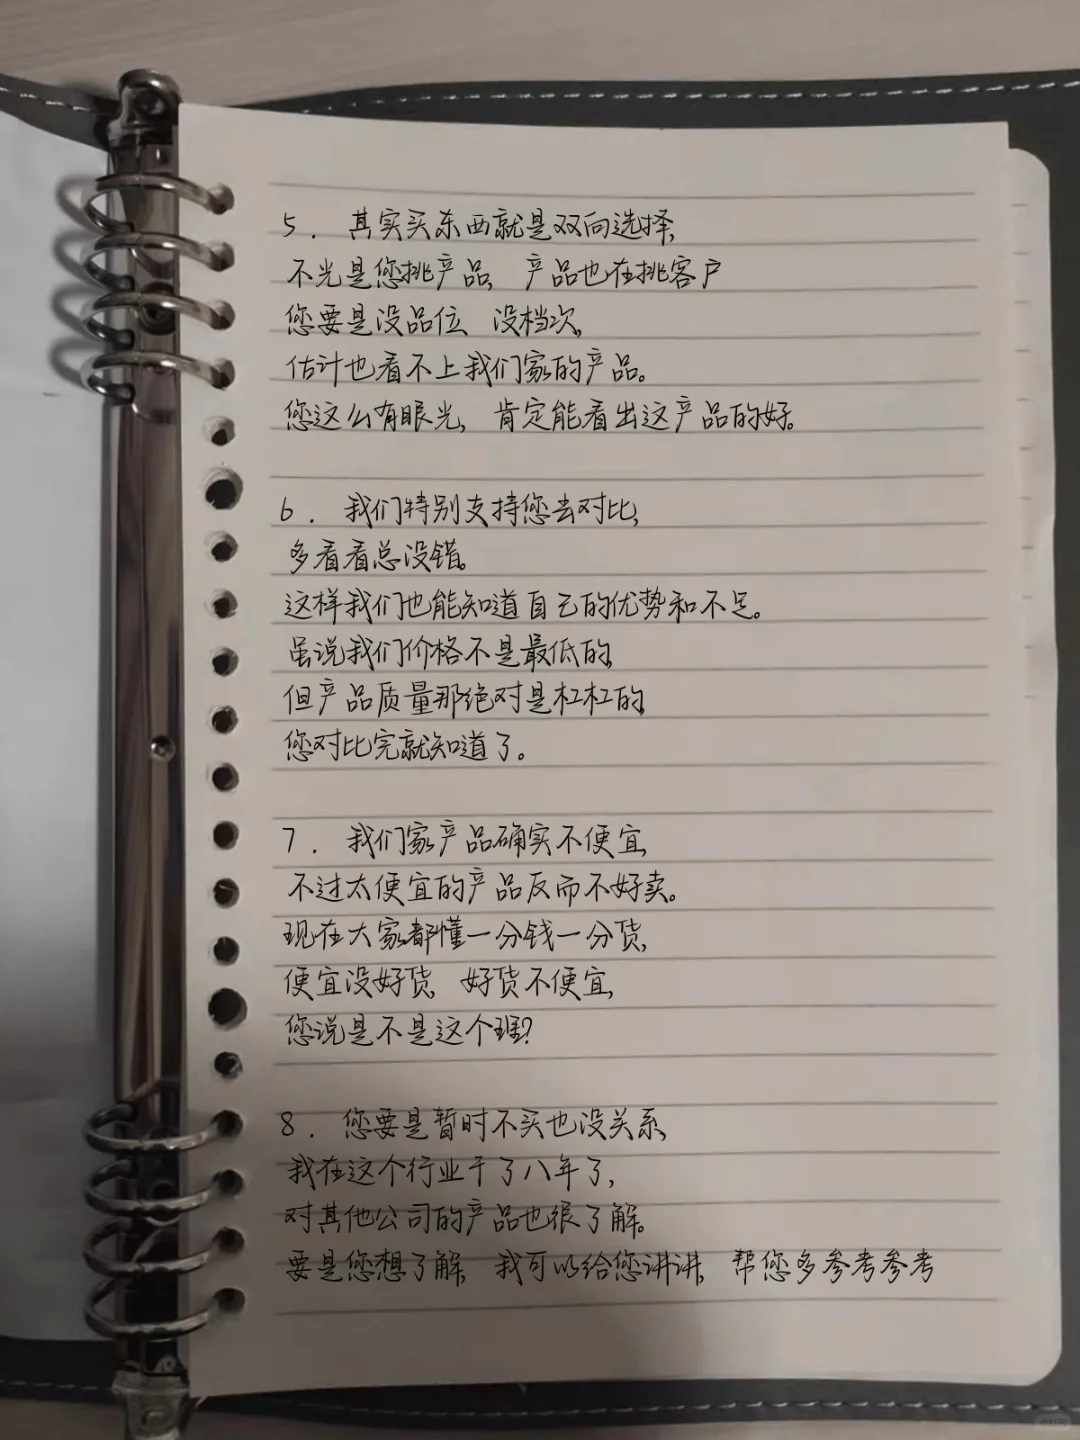 5. 其实买东西就是双向选择,
不光是您挑产品, 产品也在挑客户
您要是没品位、没档次,
估计也看不上我们家的产品。
您这么有眼光, 肯定能看出这产品的好。
6. 我们特别支持您去对比,
多看看总没错。
这样我们也能知道自己的优势和不足。
虽说我们价格不是最低的,
但产品质量那绝对是杠杠的,
您对比完就知道了。
7. 我们家产品确实不便宜,
不过太便宜的产品反而不好卖。
现在大家都懂一分钱一分货,
便宜没好货, 好货不便宜,
您说是不是这个理?
8. 您要是暂时不买也没关系,
我在这个行业干了八年了,
对其他公司的产品也很了解。
要是您想了解, 我可以给您讲讲, 帮您多参考参考
小红书